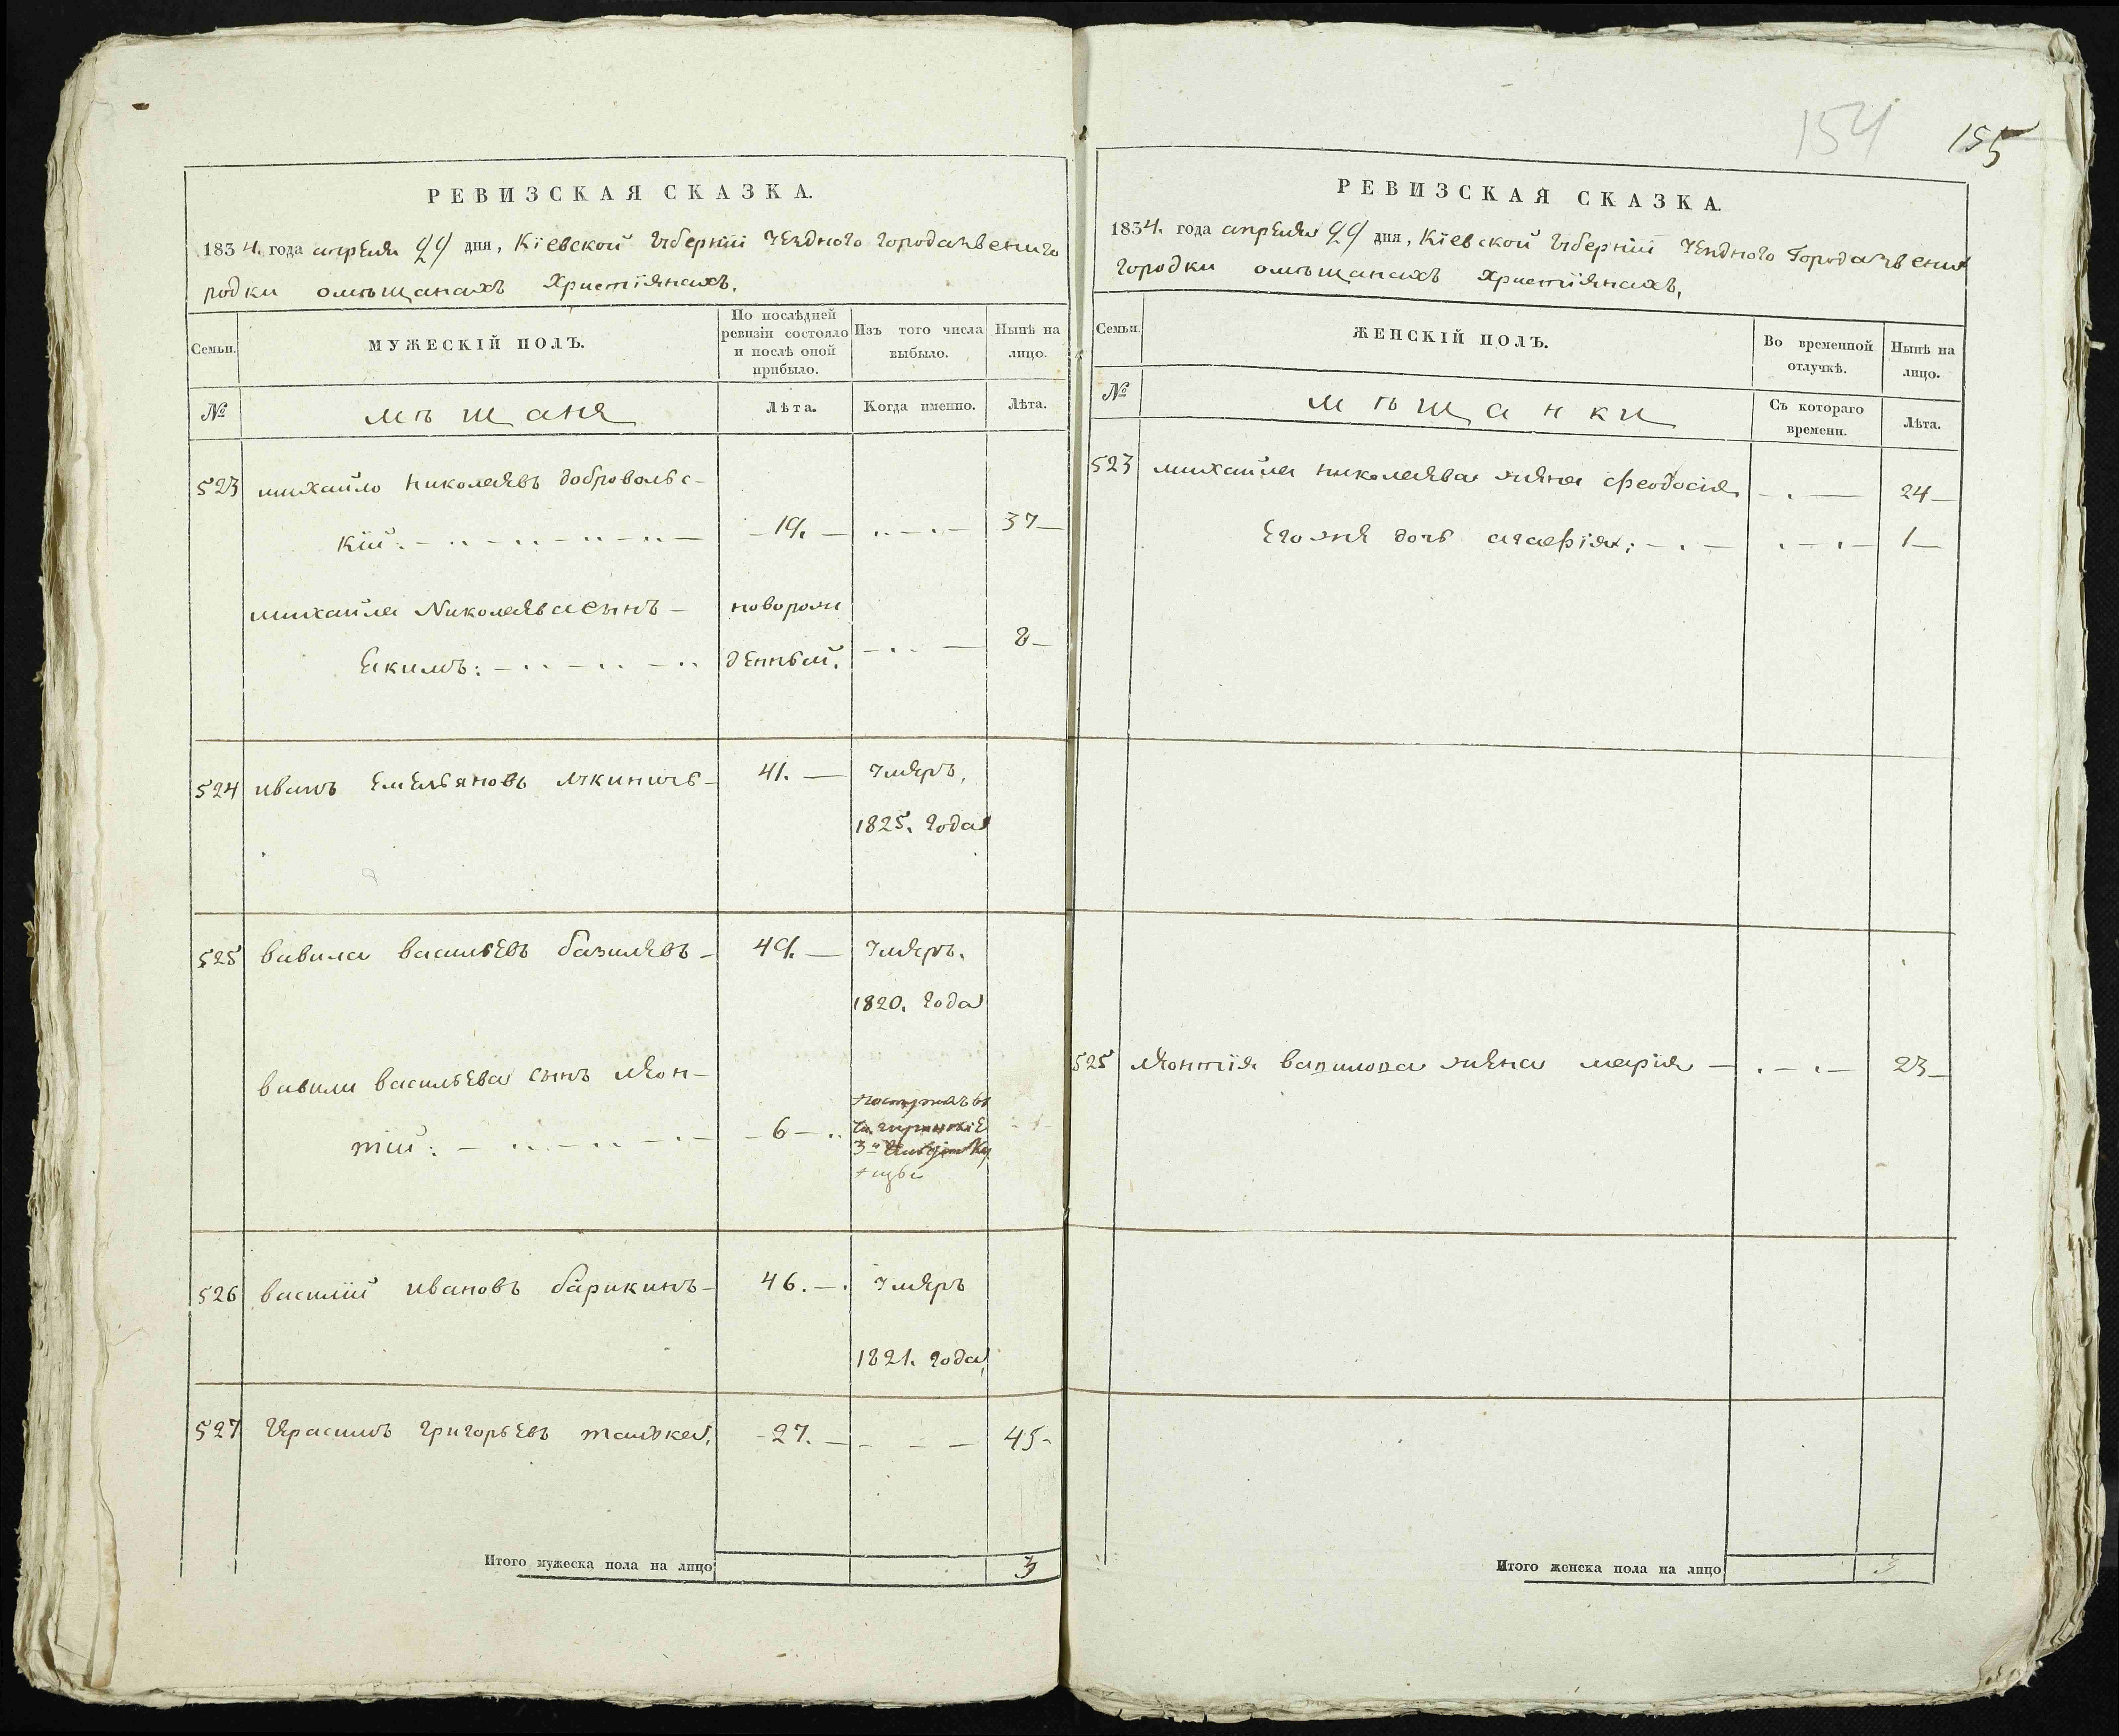 154
155
РЕВИЗСКАЯ СКАЗКА.
1834. года апреля 29 дня, Кіевской губерніи уездного города звениго
родки омѣщанахъ христіянахъ.
Семьи.
МУЖЕСКІЙ ПОЛЪ.
По послѣдней ревизіи состояло и послѣ оной прибыло.
Изъ того числа выбыло.
Нынѣ на лицо.
№
мѣщане
Лѣта.
Когда именно.
Лѣта.
523 михайло николаевъ добровольс-
кій: 19. 37
михайла Николаева сынъ новорож
Екимъ: денный. 8
524 иванъ Емельяновъ 41. умеръ,
1825. года
525 вавила васильевъ базилевъ 49. умеръ.
1820. года
вавили васильева сынъ леон-
тій: 6
3й
526 василій ивановъ барикинъ 46. умеръ
1821. года
527 Герасимъ григорьевъ 27. 45
Итого мужеска пола на лицо 3
РЕВИЗСКАЯ СКАЗКА.
1834. года апреля 29 дня, Кіевской губерніи уездного города звени
городки омѣщанахъ христіянахъ,
Семьи.
ЖЕНСКІЙ ПОЛЪ.
Во временной отлучкѣ.
Нынѣ на лицо.
№
мѣщанки
Съ котораго времени.
Лѣта.
523 михайла николаева жена феодосія 24
Его же дочь агафія: 1
525 леонтія вавилова жена марія 23
Итого женска пола на лицо 3